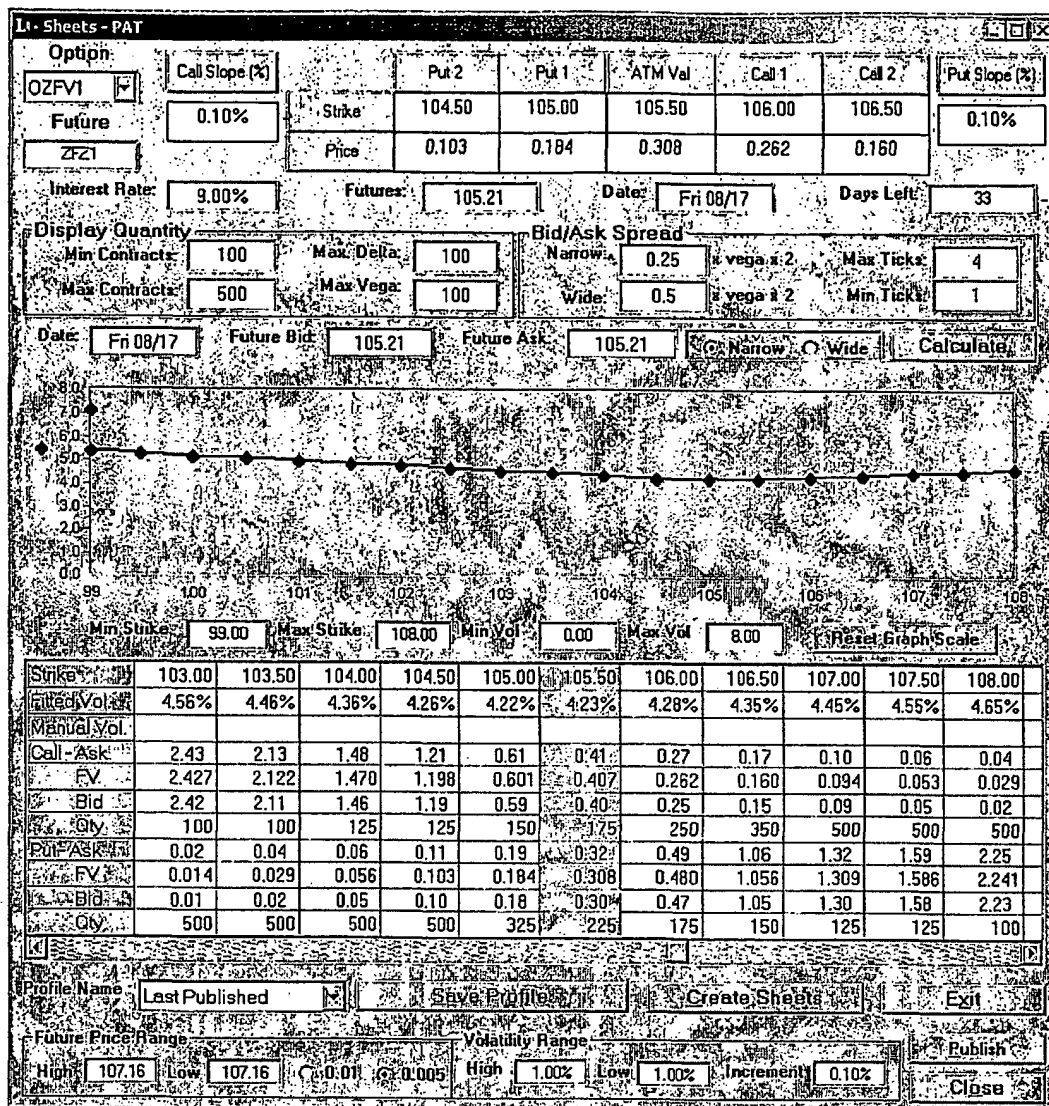 Sheets - PAT
Option
OZFV1
Future
ZFZ1
Call Slope (%)
0.10%
Put 2 Put 1 ATM Val Call 1 Call 2
Strike 104.50 105.00 105.50 106.00 106.50
Price 0.103 0.184 0.308 0.262 0.160
Put Slope (%)
0.10%
Interest Rate: 9.00% Futures: 105.21 Date: Fri 08/17 Days Left: 33
Display Quantity
Min Contracts: 100 Max. Delta: 100
Max Contracts: 500 Max Vega: 100
Bid/Ask Spread
Narrow: 0.25 x vega x 2 Max Ticks: 4
Wide: 0.5 x vega x 2 Min Ticks: 1
Date: Fri 08/17 Future Bid: 105.21 Future Ask: 105.21 Narrow Wide Calculate
8.0
7.0
6.0
5.0
4.0
3.0
2.0
1.0
0.0
99 100 101 102 103 104 105 106 107 108
Min Strike: 99.00 Max Strike: 108.00 Min Vol 0.00 Max Vol 8.00 Reset Graph Scale
Strike 103.00 103.50 104.00 104.50 105.00 105.50 106.00 106.50 107.00 107.50 108.00
Fitted Vol. 4.56% 4.46% 4.36% 4.26% 4.22% 4.23% 4.28% 4.35% 4.45% 4.55% 4.65%
Manual Vol.
Call - Ask 2.43 2.13 1.48 1.21 0.61 0.41 0.27 0.17 0.10 0.06 0.04
FV 2.427 2.122 1.470 1.198 0.601 0.407 0.262 0.160 0.094 0.053 0.029
Bid 2.42 2.11 1.46 1.19 0.59 0.40 0.25 0.15 0.09 0.05 0.02
Qty 100 100 125 125 150 175 250 350 500 500 500
Put - Ask 0.02 0.04 0.06 0.11 0.19 0.32 0.49 1.06 1.32 1.59 2.25
FV 0.014 0.029 0.056 0.103 0.184 0.308 0.480 1.056 1.309 1.586 2.241
Bid 0.01 0.02 0.05 0.10 0.18 0.30 0.47 1.05 1.30 1.58 2.23
Qty 500 500 500 500 325 225 175 150 125 125 100
Profile Name Last Published Save Profile Create Sheets Exit
Future Price Range
High 107.16 Low 107.16 0.01 0.005
Volatility Range
High 1.00% Low 1.00% Increment 0.10%
Publish
Close